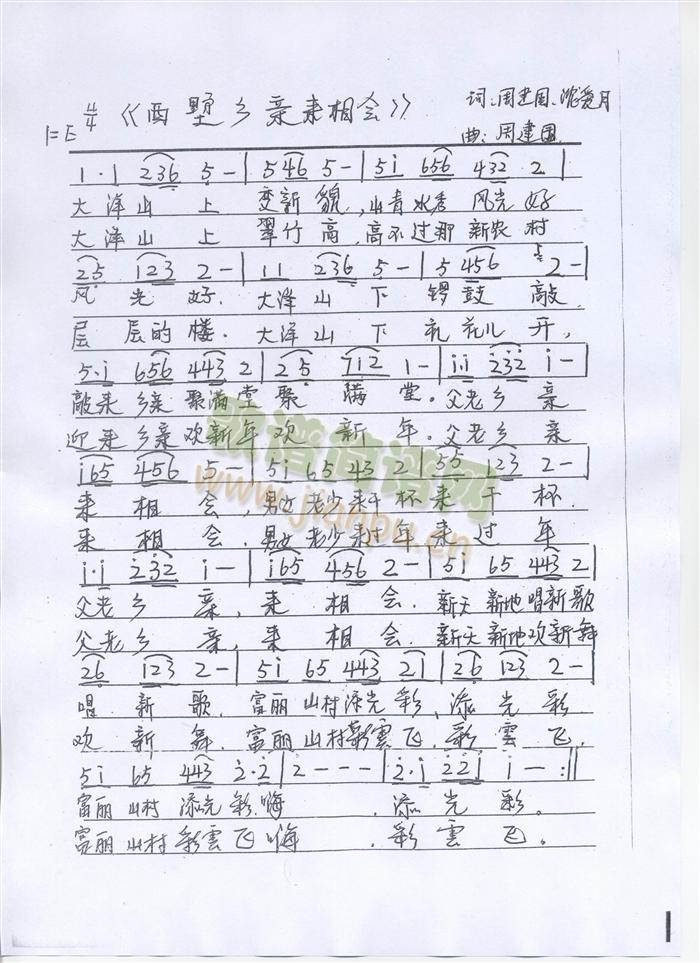 1=E 4/4 《西墅乡亲来相会》 词:周建国、沈爱月
曲:周建国
1·1 236 5 - | 546 5 - | 5i 656 432 2 |
大泽山 上 变新 貌,山青水秀 风光 好
大泽山 上 翠竹 高,高不过那 新农 村
25 123 2 - | 11 236 5 - | 5 456 2 -
风 光 好. 大泽山 下 锣鼓 敲.
层 层的楼. 大泽山 下 礼花儿 开,
5·i 656 443 2 | 25 712 1 - | ii 232 i -
敲来乡亲 聚满堂 聚 满 堂。父老乡 亲
迎来乡亲欢新年 欢 新 年。父老乡 亲
i65 456 5 - | 5i 65 43 2 | 55 123 2 -
来 相 会,男女老少来干杯来 干 杯.
来 相 会.男女老少来过年来 过 年
i·i 232 i - | i65 456 2 - | 5i 65 443 2
父老乡 亲, 来 相 会. 新天新地唱新歌
父老乡 亲, 来 相 会. 新天新地欢新舞
26 123 2 - | 5i 65 443 2i | 26 123 2 -
唱 新 歌. 富丽山村添光彩、添 光 彩
欢 新 舞. 富丽山村彩雲飞.彩 雲 飞.
5i 65 443 2·2 | 2 - - - | 2·i 22i i - :||
富丽山村 添光彩.嗨 . 添 光 彩。
富丽山村彩雲飞 嗨 . 彩 雲 飞。
歌谱简谱网
www.jianpu.cn